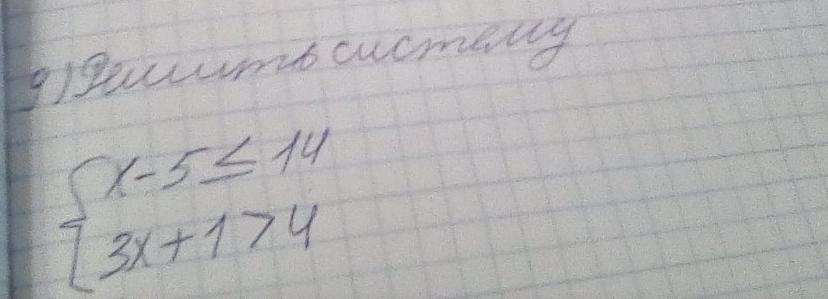 9) Решить систему
{ x - 5 ≤ 14
3x + 1 > 4